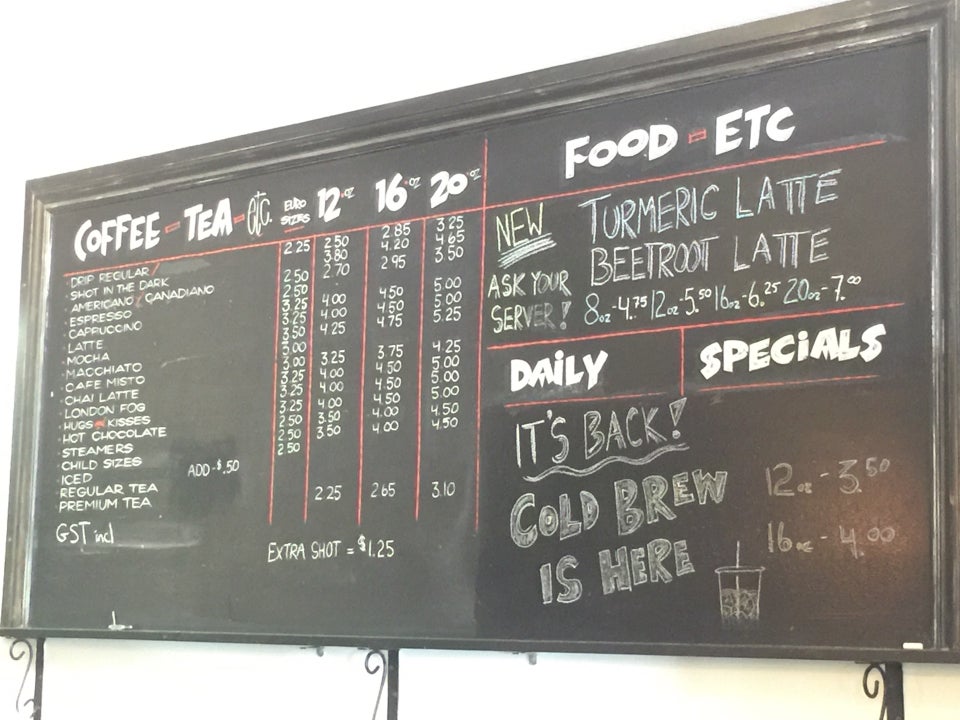 COFFEE - TEA - etc.
EURO
SIZES
12 oz
16 oz
20 oz
DRIP REGULAR /
SHOT IN THE DARK
AMERICANO / CANADIANO
ESPRESSO
CAPPUCCINO
LATTE
MOCHA
MACCHIATO
CAFE MISTO
CHAI LATTE
LONDON FOG
HUGS & KISSES
HOT CHOCOLATE
STEAMERS
CHILD SIZES
ICED ADD - $.50
REGULAR TEA
PREMIUM TEA
2.25
2.50
2.50
3.25
3.25
3.50
3.00
3.00
3.25
3.25
3.25
2.50
2.50
2.50
2.50
3.80
2.70
4.00
4.00
4.25
3.25
4.00
4.00
4.00
3.50
3.50
2.25
2.85
4.20
2.95
4.50
4.50
4.75
3.75
4.50
4.50
4.50
4.00
4.00
2.65
3.25
4.65
3.50
5.00
5.00
5.25
4.25
5.00
5.00
5.00
4.50
4.50
3.10
GST incl
EXTRA SHOT = $1.25
FOOD - ETC
NEW
TURMERIC LATTE
BEETROOT LATTE
ASK YOUR
SERVER!
8oz-4.75 12oz-5.50 16oz-6.25 20oz-7.00
DAILY
SPECIALS
IT'S BACK!
COLD BREW
IS HERE
12oz - 3.50
16oz - 4.00